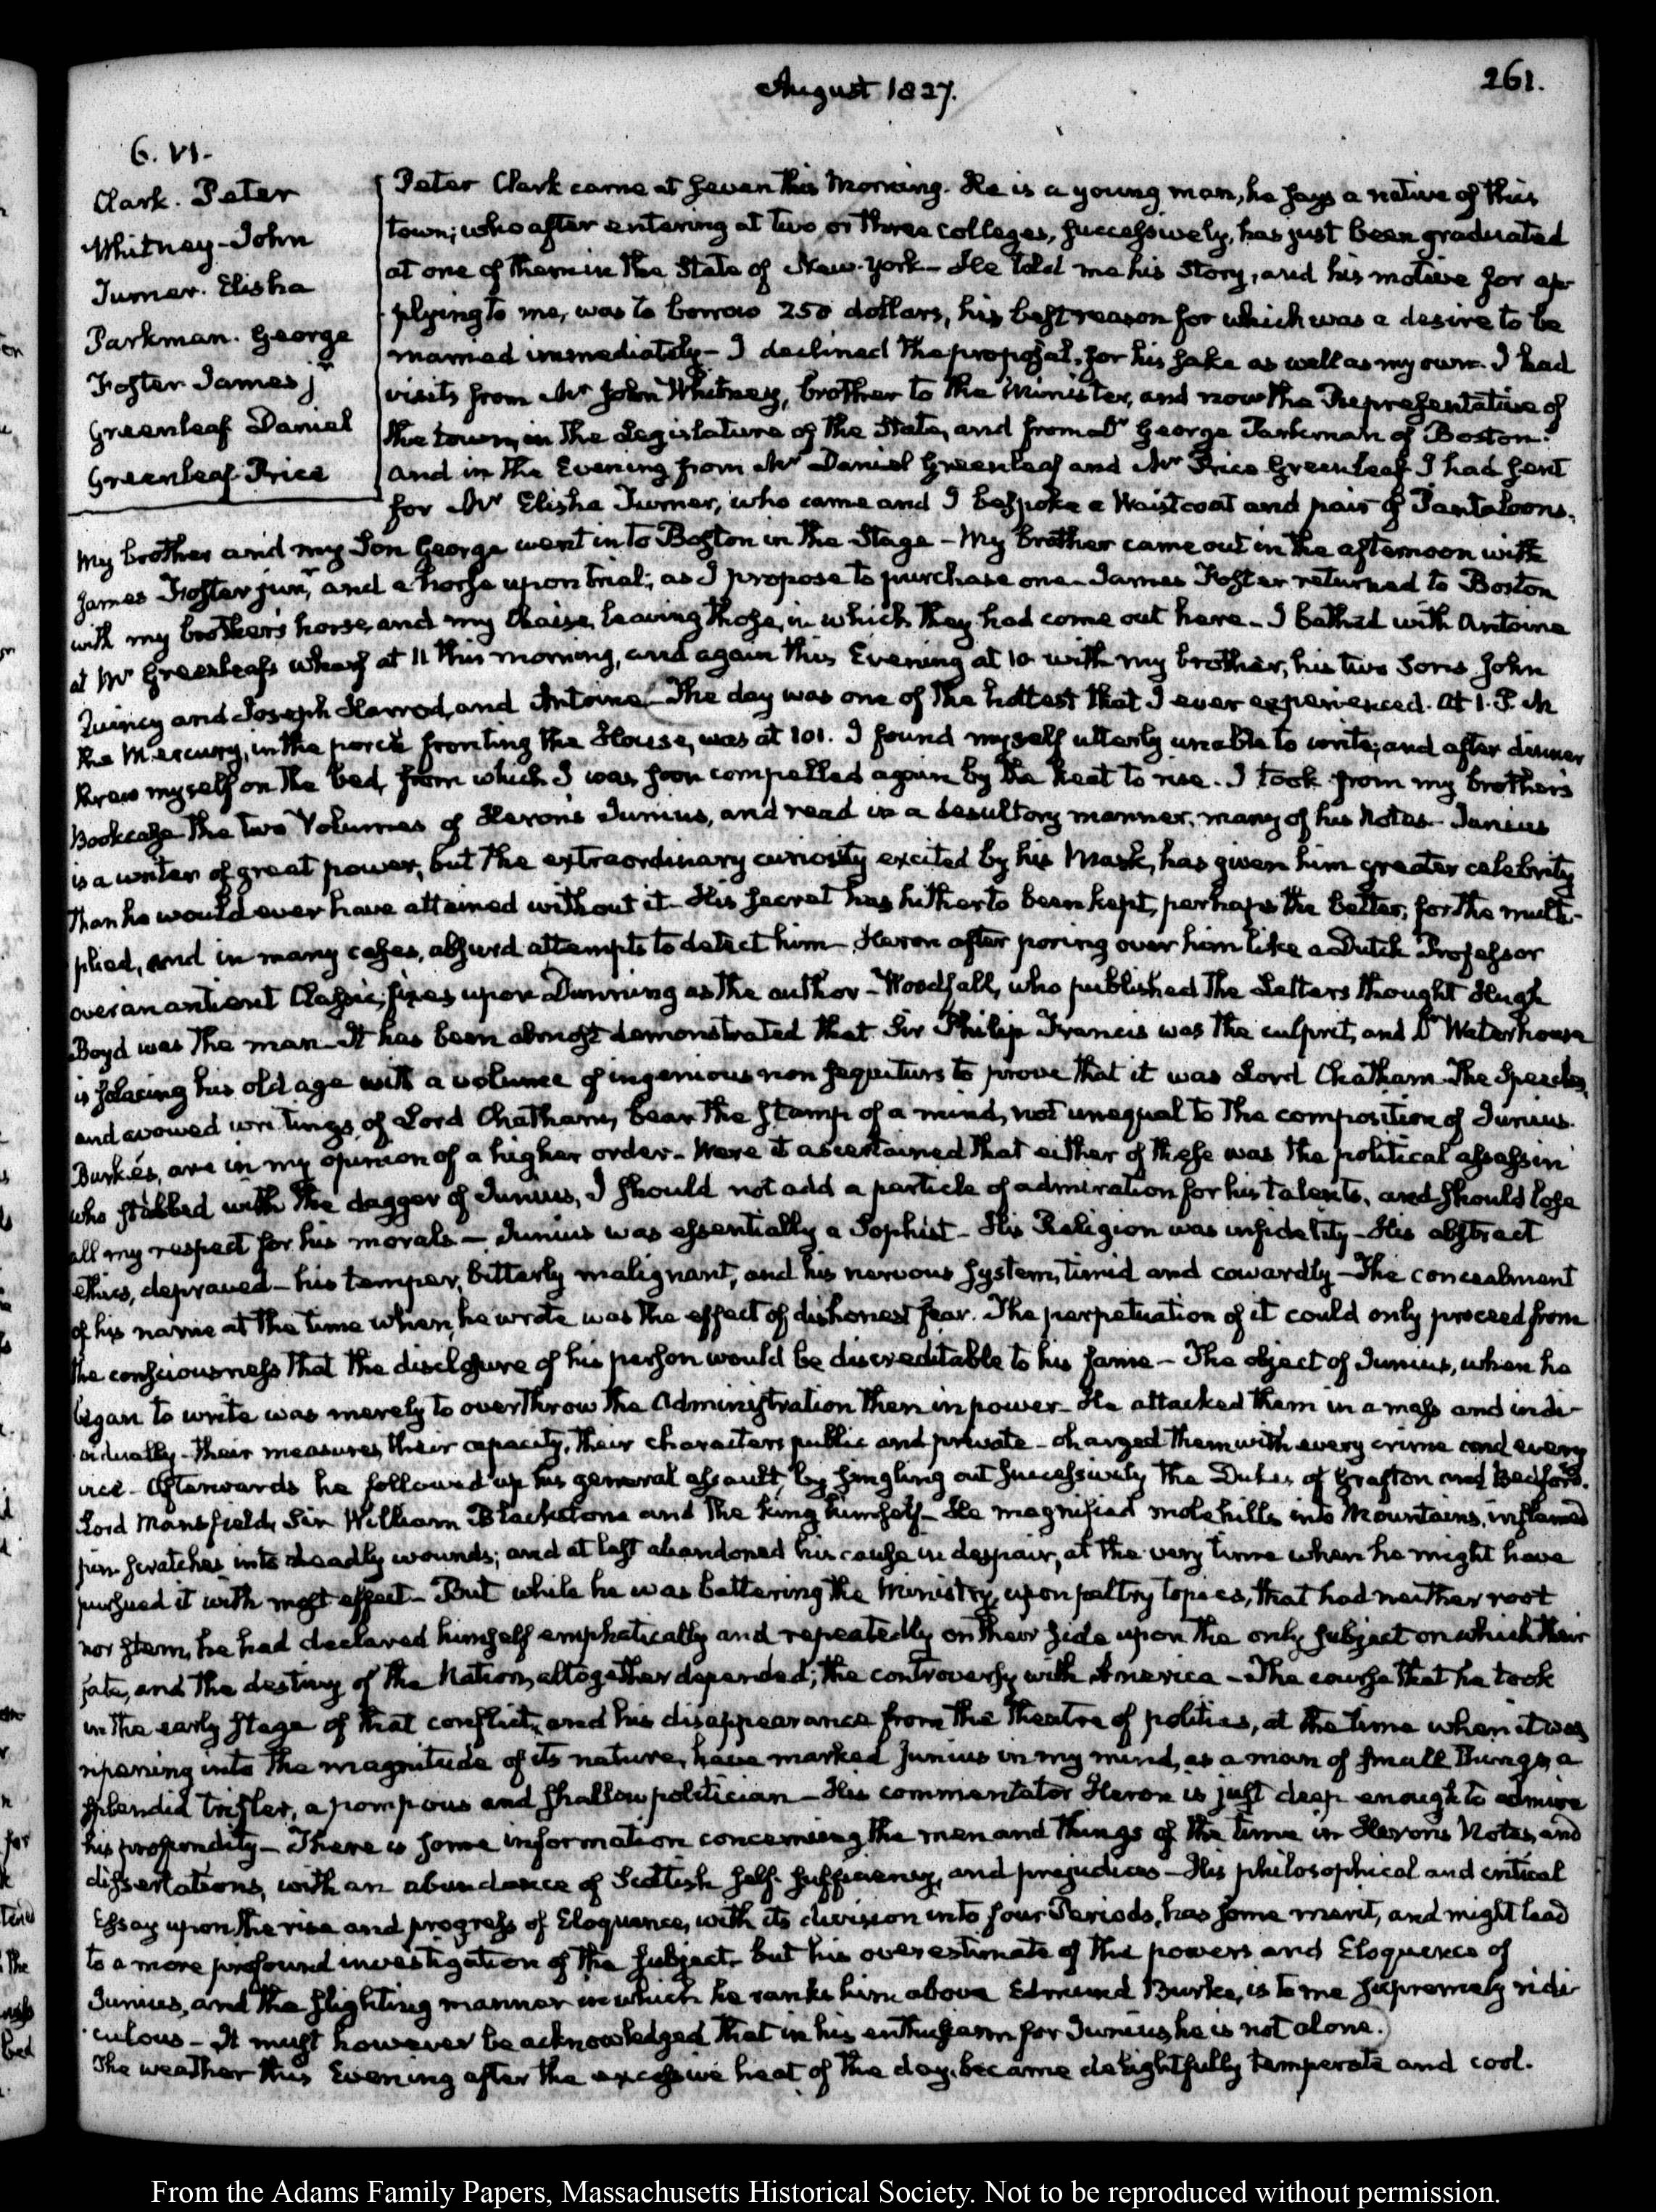 August 1827.
261.
6. VI.
Clark. Peter
Whitney - John
Turner. Elisha
Parkman. George
Foster James jr
Greenleaf Daniel
Greenleaf Price
Peter Clark came at seven this Morning. He is a young man, he says a native of this
town; who after entering at two or three colleges, successively, has just been graduated
at one of them in the State of New-York - He told me his Story, and his motive for ap-
plying to me, was to borrow 250 dollars, his best reason for which was a desire to be
married immediately - I declined the proposal, for his sake as well as my own. I had
visits from Mr John Whitney, brother to the Minister, and now the Representative of
the town, in the Legislature of the State, and from Dr George Parkman of Boston.
And in the Evening from Mr Daniel Greenleaf and Mr Price Greenleaf. I had sent
for Mr Elisha Turner, who came and I bespoke a Waistcoat and pair of Pantaloons.
My brother and my Son George went in to Boston in the Stage - My brother came out in the afternoon with
James Foster junr, and a horse upon trial; as I propose to purchase one. James Foster returned to Boston
with my brother's horse, and my Chaise, leaving those, in which they had come out here - I bathed with Antoine
at Mr Greenleaf's wharf at 11 this morning, and again this Evening at 10 with my brother, his two Sons John
Quincy and Joseph Harrod, and Antoine (The day was one of the hottest that I ever experienced. At 1. P.M
the Mercury, in the porch fronting the House, was at 101. I found myself utterly unable to write; and after dinner
threw myself on the bed, from which I was soon compelled again by the heat to rise. I took from my brother's
Bookcase the two Volumes of Heron's Junius, and read in a desultory manner, many of his Notes - Junius
is a writer of great power, but the extraordinary curiosity excited by his Mask, has given him greater celebrity
than he would ever have attained without it - His secret has hitherto been kept, perhaps the better, for the multi-
plied, and in many cases, absurd attempts to detect him - Heron after poring over him like a Dutch Professor
over an antient Classic, fixes upon Dunning as the author - Woodfall, who published the Letters thought Hugh
Boyd was the man - It has been almost demonstrated that Sir Philip Francis was the culprit, and Dr Waterhouse
is solacing his old age with a volume of ingenious non sequiturs to prove that it was Lord Chatham. The Speeches,
and avowed writings of Lord Chatham, bear the stamp of a mind, not unequal to the composition of Junius.
Burke's, are in my opinion of a higher order - Were it ascertained that either of these was the political assassin
who stabbed with the dagger of Junius, I should not add a particle of admiration for his talents, and should lose
all my respect for his morals - Junius was essentially a Sophist - His Religion was infidelity - His abstract
ethics, depraved - his temper, bitterly malignant, and his nervous system, timid and cowardly - The concealment
of his name at the time when he wrote was the effect of dishonest fear. The perpetuation of it could only proceed from
the consciousness that the disclosure of his person would be discreditable to his fame - The object of Junius, when he
began to write was merely to overthrow the Administration then in power - He attacked them in a mass and indi-
vidually - their measures, their capacity, their characters public and private - charged them with every crime and every
vice - Afterwards he followed up his general assault, by singling out successively the Dukes of Grafton and Bedford,
Lord Mansfield, Sir William Blackstone and the King himself - He magnified mole hills into Mountains, inflamed
pin-scratches into deadly wounds; and at last abandoned his cause in despair, at the very time when he might have
pursued it with most effect - But while he was battering the Ministry, upon paltry topics, that had neither root
nor stem, he had declared himself emphatically and repeatedly on their side upon the only subject on which their
fate, and the destiny of the Nation, altogether depended; the controversy with America - The course that he took
in the early stage of that conflict, and his disappearance from the Theatre of politics, at the time when it was
ripening into the magnitude of its nature, have marked Junius in my mind, as a man of small things, a
splendid trifler, a pompous and shallow politician - His commentator Heron is just deep enough to admire
his profundity - There is some information concerning the men and things of the time in Heron's Notes, and
dissertations, with an abundance of Scottish self-sufficiency, and prejudices - His philosophical and critical
Essay upon the rise and progress of Eloquence, with its division into four Periods, has some merit, and might lead
to a more profound investigation of the subject. but his overestimate of the powers and Eloquence of
Junius, and the slighting manner in which he ranks him above Edmund Burke, is to me supremely ridi-
culous - It must however be acknowledged that in his enthusiasm for Junius he is not alone.)
The weather this Evening after the excessive heat of the day, became delightfully temperate and cool.
From the Adams Family Papers, Massachusetts Historical Society. Not to be reproduced without permission.